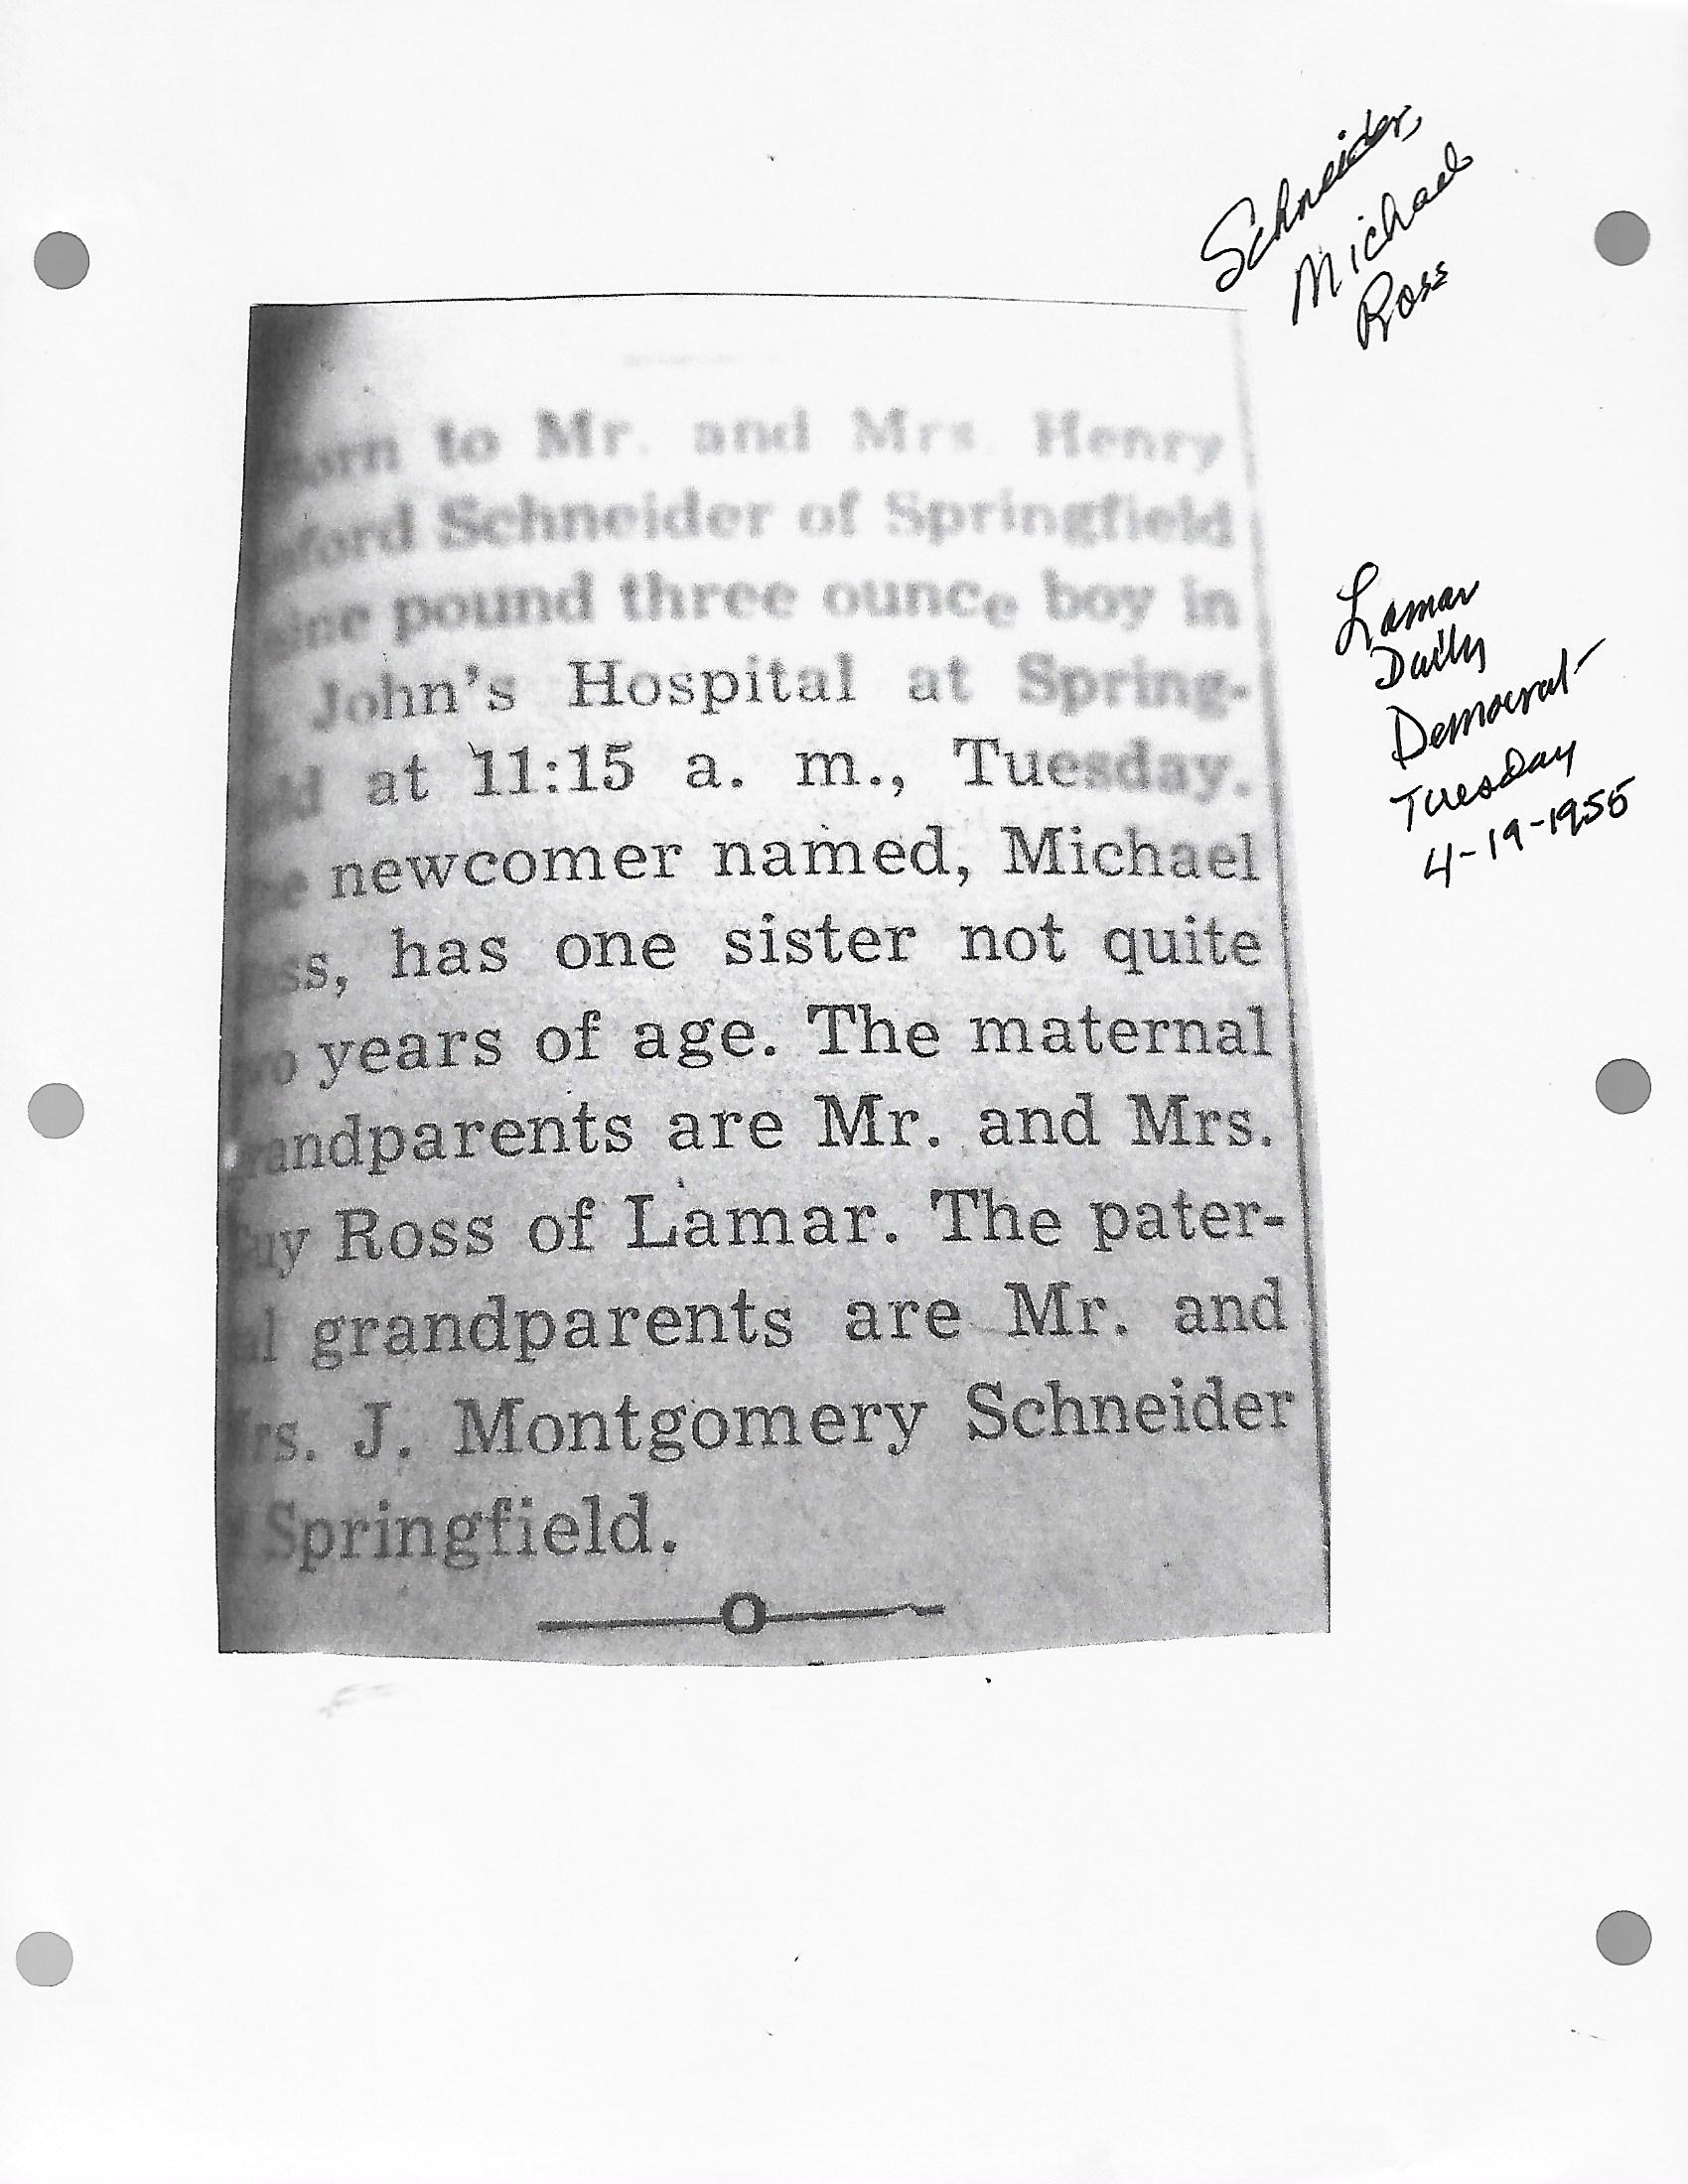 Schneider,
Michael
Ross
orn to Mr. and Mrs. Henry
ford Schneider of Springfield
ine pound three ounce boy in
John's Hospital at Spring-
ld at 11:15 a. m., Tuesday.
e newcomer named, Michael
ss, has one sister not quite
o years of age. The maternal
andparents are Mr. and Mrs.
uy Ross of Lamar. The pater-
al grandparents are Mr. and
rs. J. Montgomery Schneider
Springfield.
O
Lamar
Daily
Democrat-
Tuesday
4-19-1955